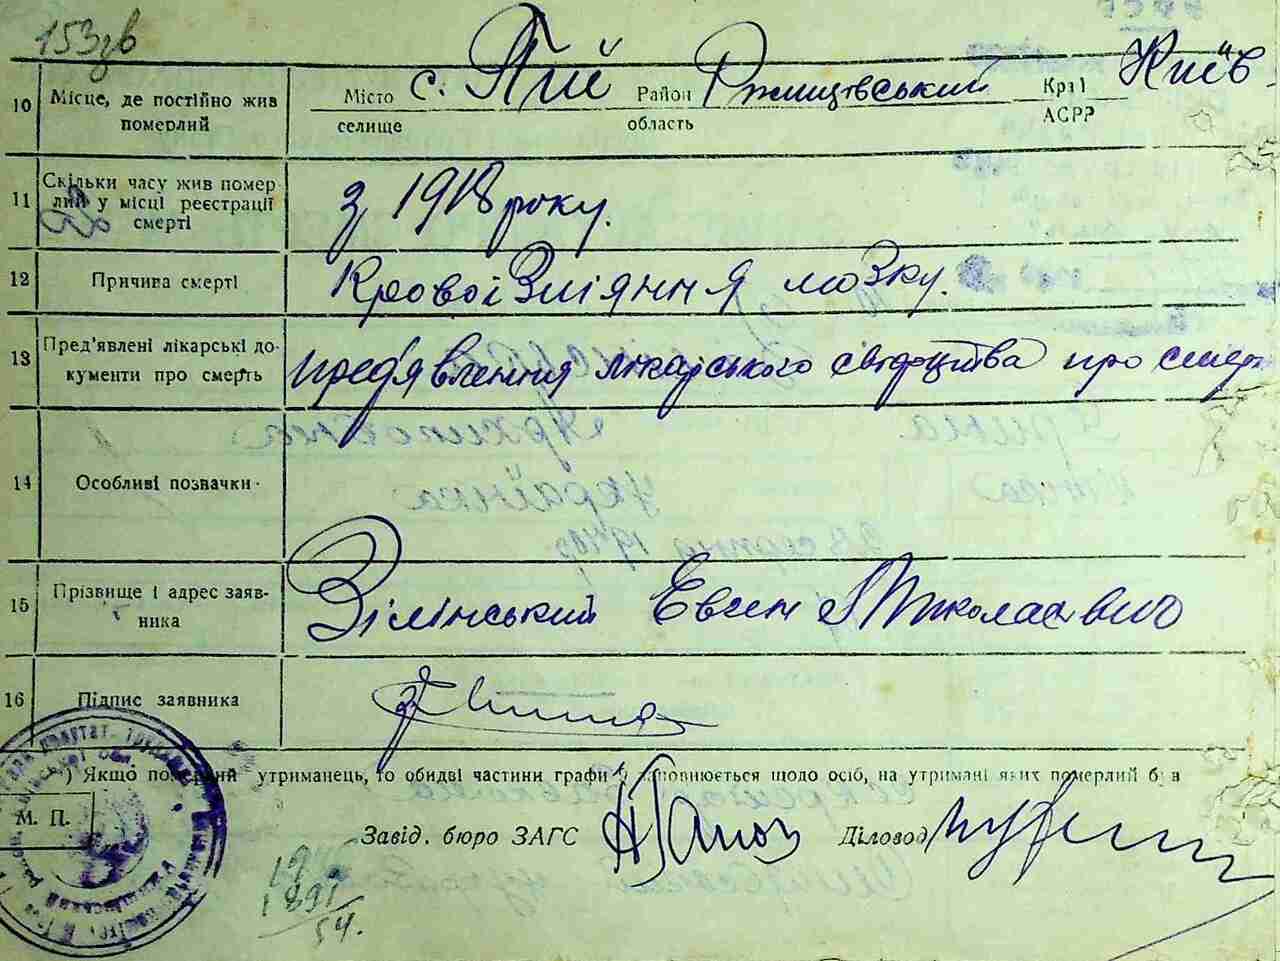 153зв
10 Місце, де постійно жив померлий Місто селище с. Пії Район область Ржищівський Край АСРР Київ
11 Скільки часу жив помер-
лий у місці реєстрації
смерті з 1918 року.
12 Причина смерті Кровоізліяння мозку.
13 Пред'явлені лікарські до-
кументи про смерть пред'явлення лікарського свідоцтва про смер
14 Особливі позначки
15 Прізвище і адрес заяв-
ника Зілінський Евген Миколаєвич
16 Підпис заявника
) Якщо померлий утриманець, то обидві частини графи 9 заповнюється щодо осіб, на утримані яких померлий був
М. П.
Завід. бюро ЗАГС Діловод
1891
54.